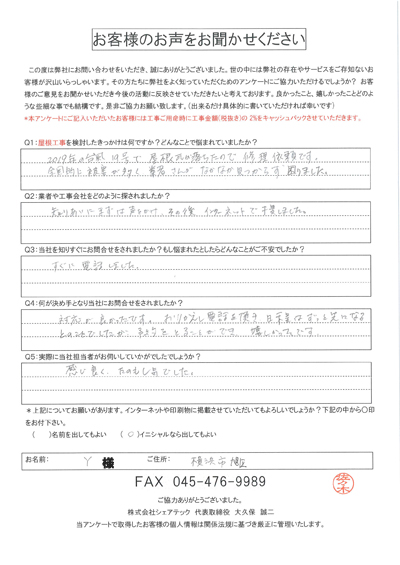 お客様のお声をお聞かせください
この度は弊社にお問い合わせをいただき、誠にありがとうございます。世の中には弊社の存在やサービスをご存知ないお
客様が沢山いらっしゃいます。その方たちに弊社をよく知っていただくためのアンケートにご協力いただけるでしょうか? お客
様のご意見をお聞かせいただき今後の活動に反映させていただきたいと考えております。良かったこと、嬉しかったことどのよ
うな些細な事でも結構です。是非ご協力お願い致します。(出来るだけ具体的に書いていただければ幸いです)
*本アンケートにご記入いただいたお客様には工事ご用命時に工事金額(税抜き)の2%をキャッシュバックさせていただきます。
Q1:屋根工事を検討したきっかけは何ですか?どんなことで悩まれていましたか?
2019年の台風19号で屋根瓦が落ちたので修理依頼です。
全国的に被害が多く業者さんがなかなか見つからず困りました。
Q2:業者や工事会社をどのように探されましたか?
知りあいにまずは声をかけ、その後インターネットで探しました。
Q3:当社を知りすぐにお問合せをされましたか?もし悩まれたとしたらどんなことがご不安でしたか?
すぐに電話しました。
Q4:何が決め手となり当社にお問合せをされましたか?
対応が良かったです。おりかえし電話を頂き
Q5:実際に当社担当者がお伺いしていかがでしたでしょうか?
感じ良く、たのもしかったです。
*上記についてお願いがあります。インターネットや印刷物に掲載させていただいてもよろしいでしょうか?下記の中から〇印
をお付下さい。
( )名前を出してもよい (○)イニシャルなら出してもよい
お名前: Y 様 ご住所: 横浜市
佐々木
FAX 045-476-9989
ご協力ありがとうございました。
株式会社シェアテック 代表取締役 大久保 誠二
当アンケートで取得したお客様の個人情報は関係法規に基づき厳正に管理いたします。